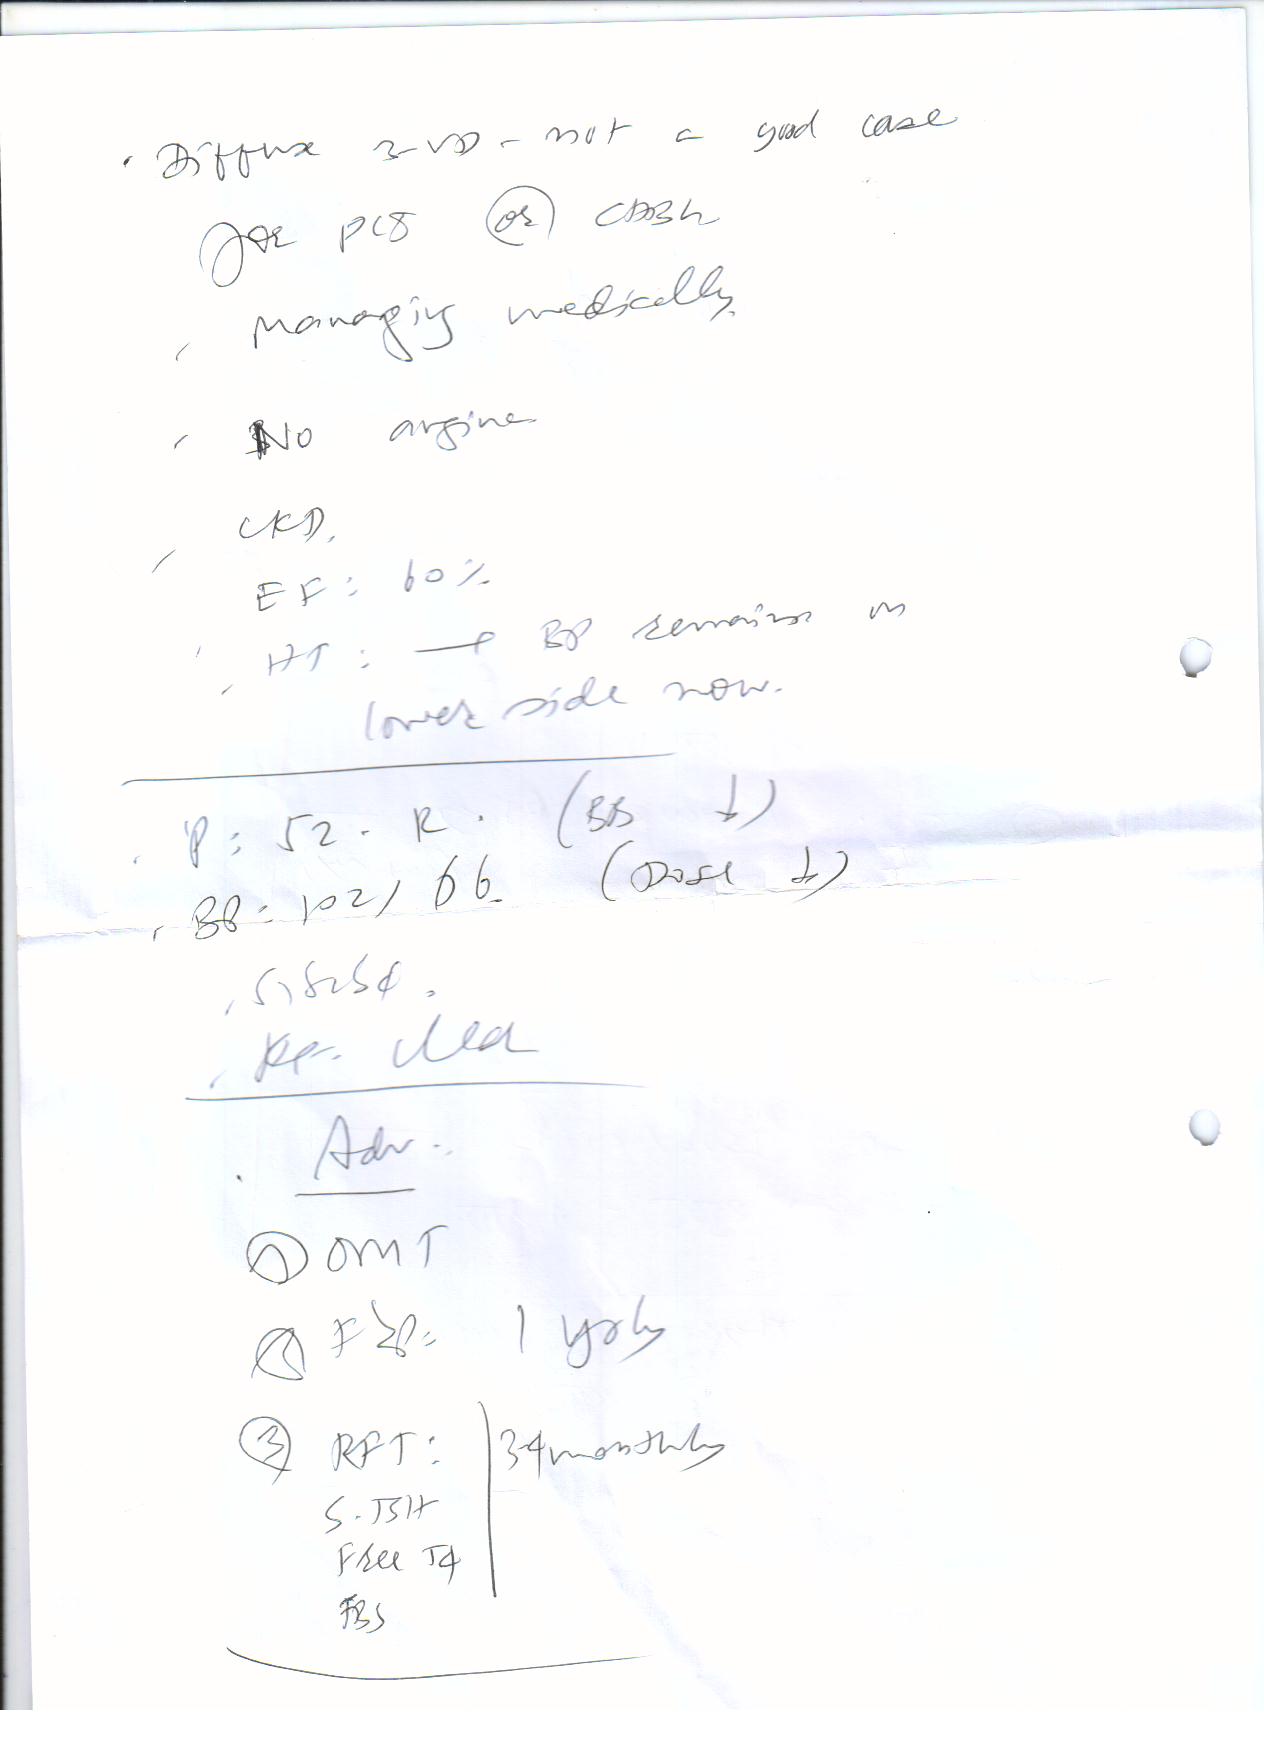 Diffuse 3-VD - not a good case
for PCI or CABG
Managing medically.
No angina
CKD.
EF: 60%
HT: → BP remains in
lower side now.
P: 52. R. (BB ↓)
BP: 102/66 (Dose ↓)
S1S2S4.
clear
Adv.
① OMT
② 1 yrly
③ RFT: 3-4 monthly
S.TSH
Free T4
FBS